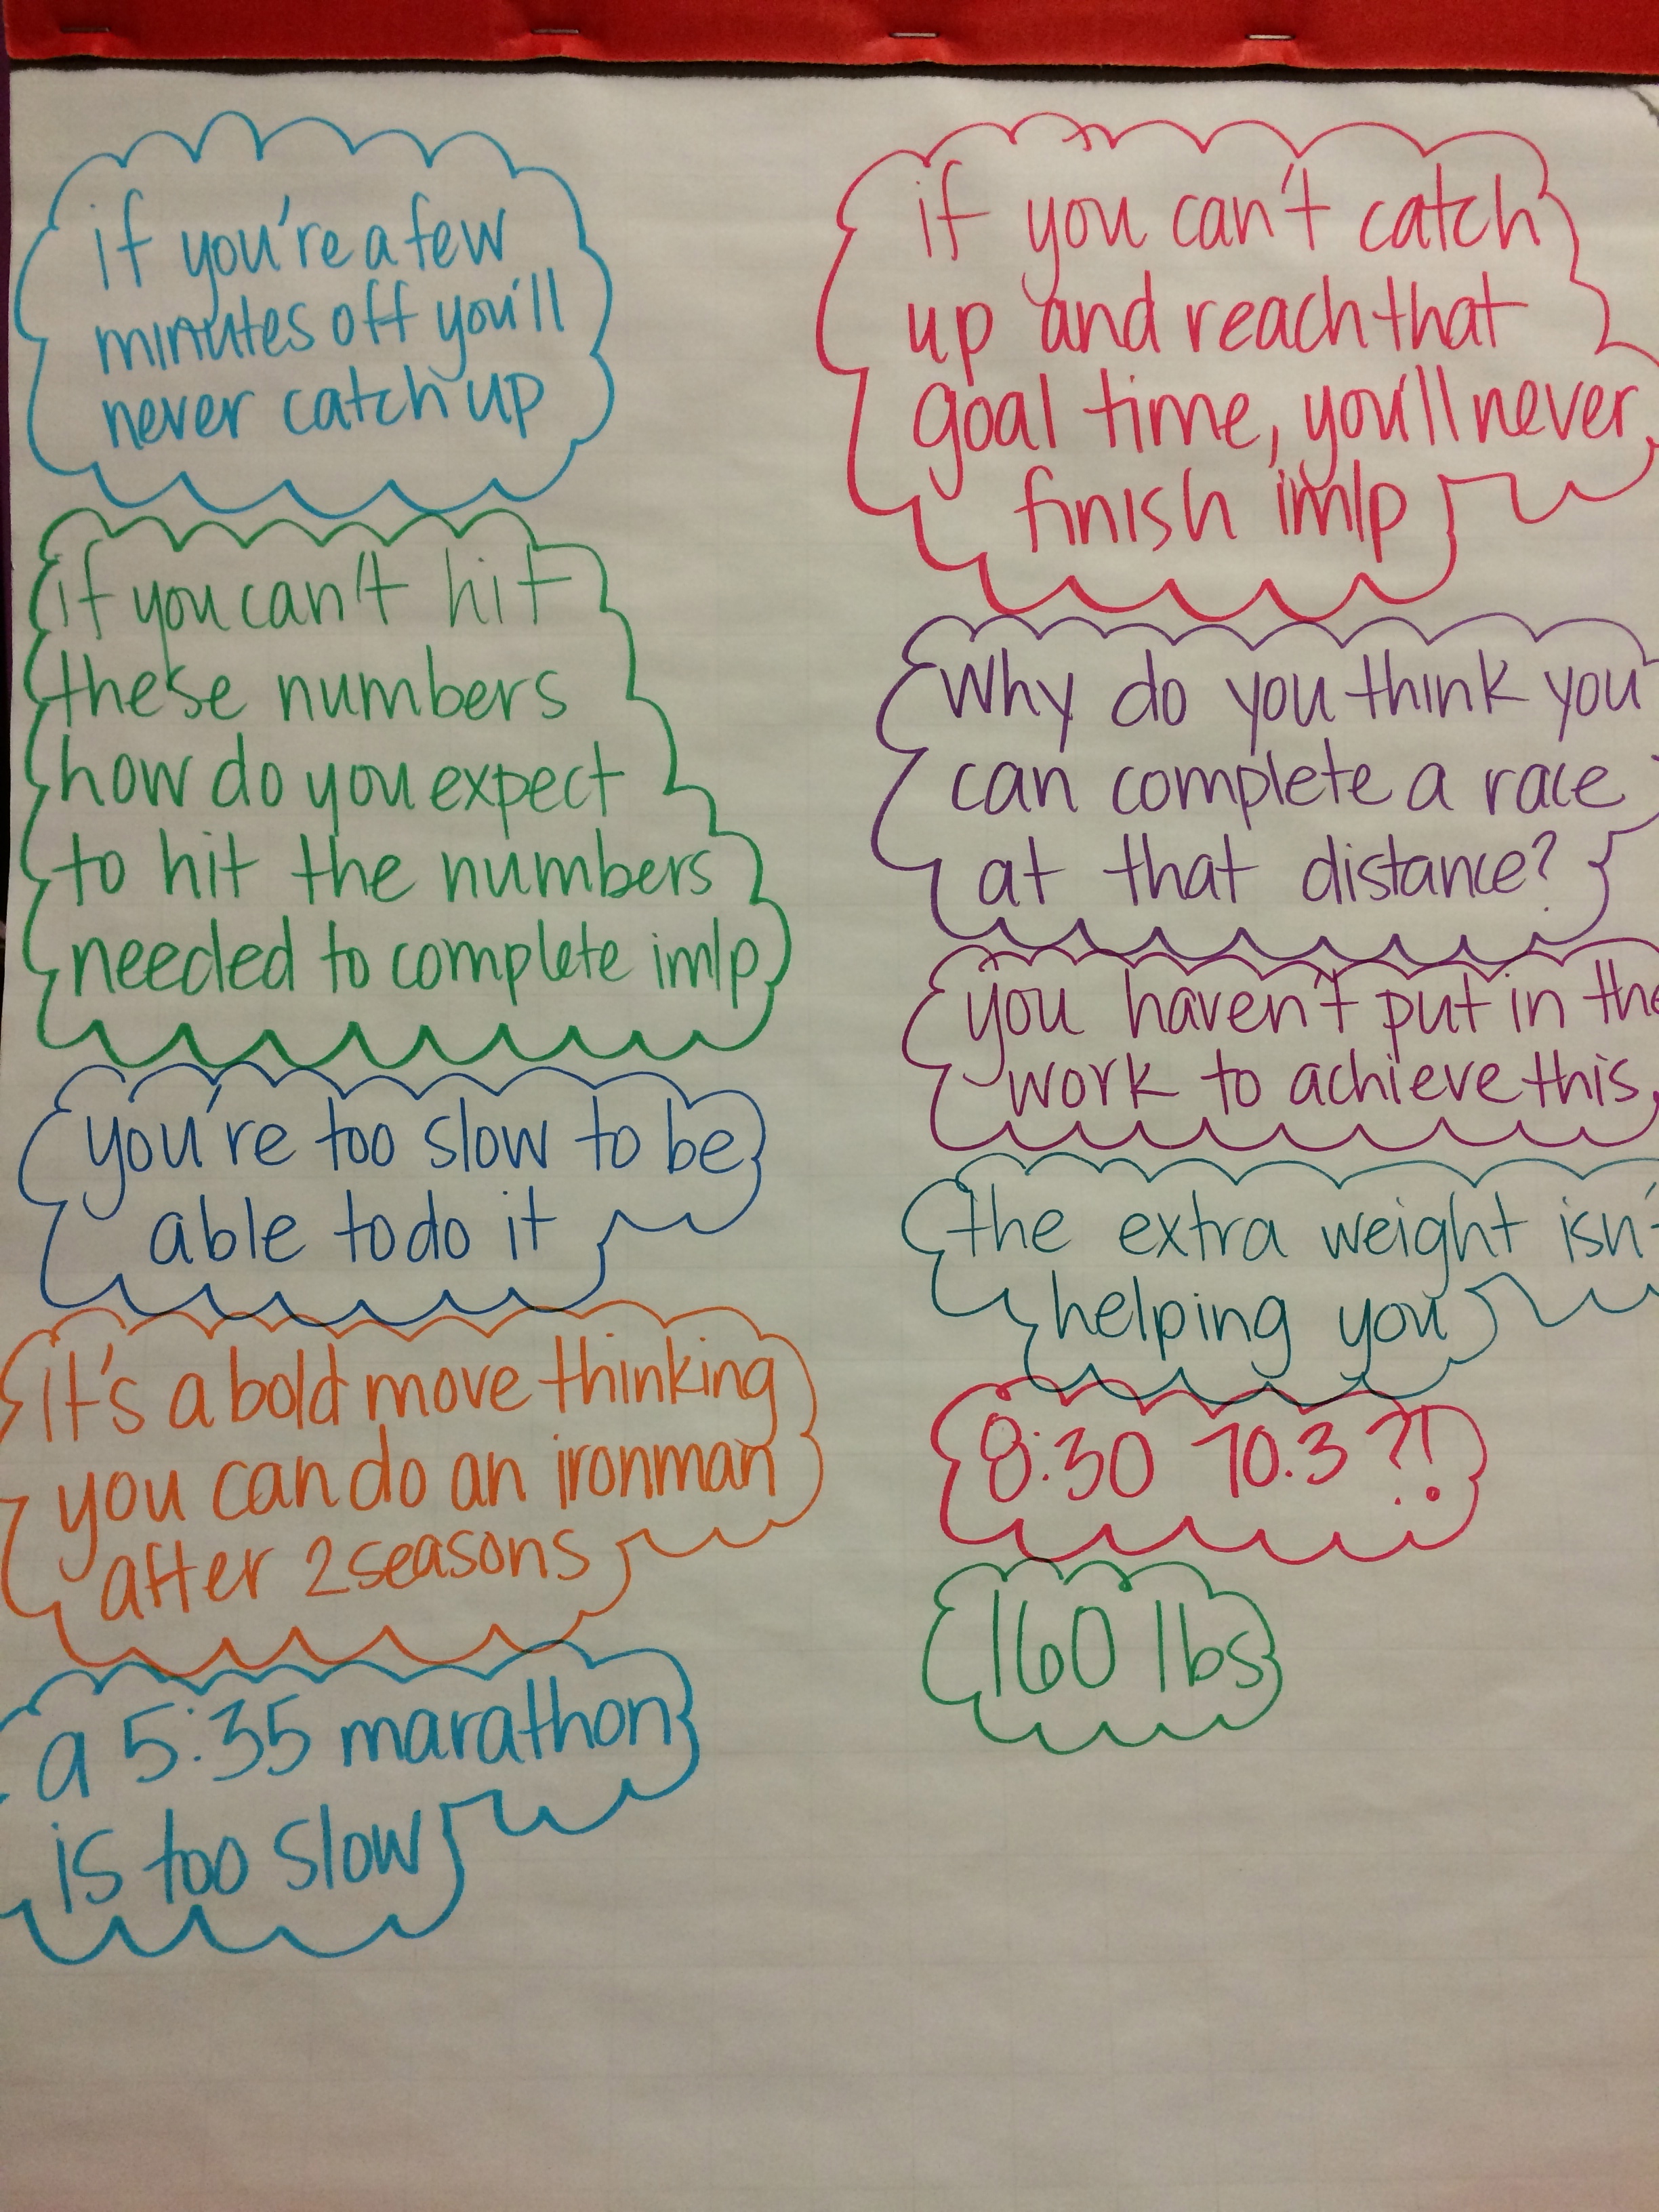 if you're a few
minutes off you'll
never catch up
if you can't hit
these numbers
how do you expect
to hit the numbers
needed to complete imlp
you're too slow to be
able to do it
it's a bold move thinking
you can do an ironman
after 2 seasons
a 5:35 marathon
is too slow
if you can't catch
up and reach that
goal time, you'll never
finish imlp
Why do you think you
can complete a race
at that distance?
you haven't put in the
work to achieve this
the extra weight isn'
helping you
8:30 70.3 ?!
160 lbs